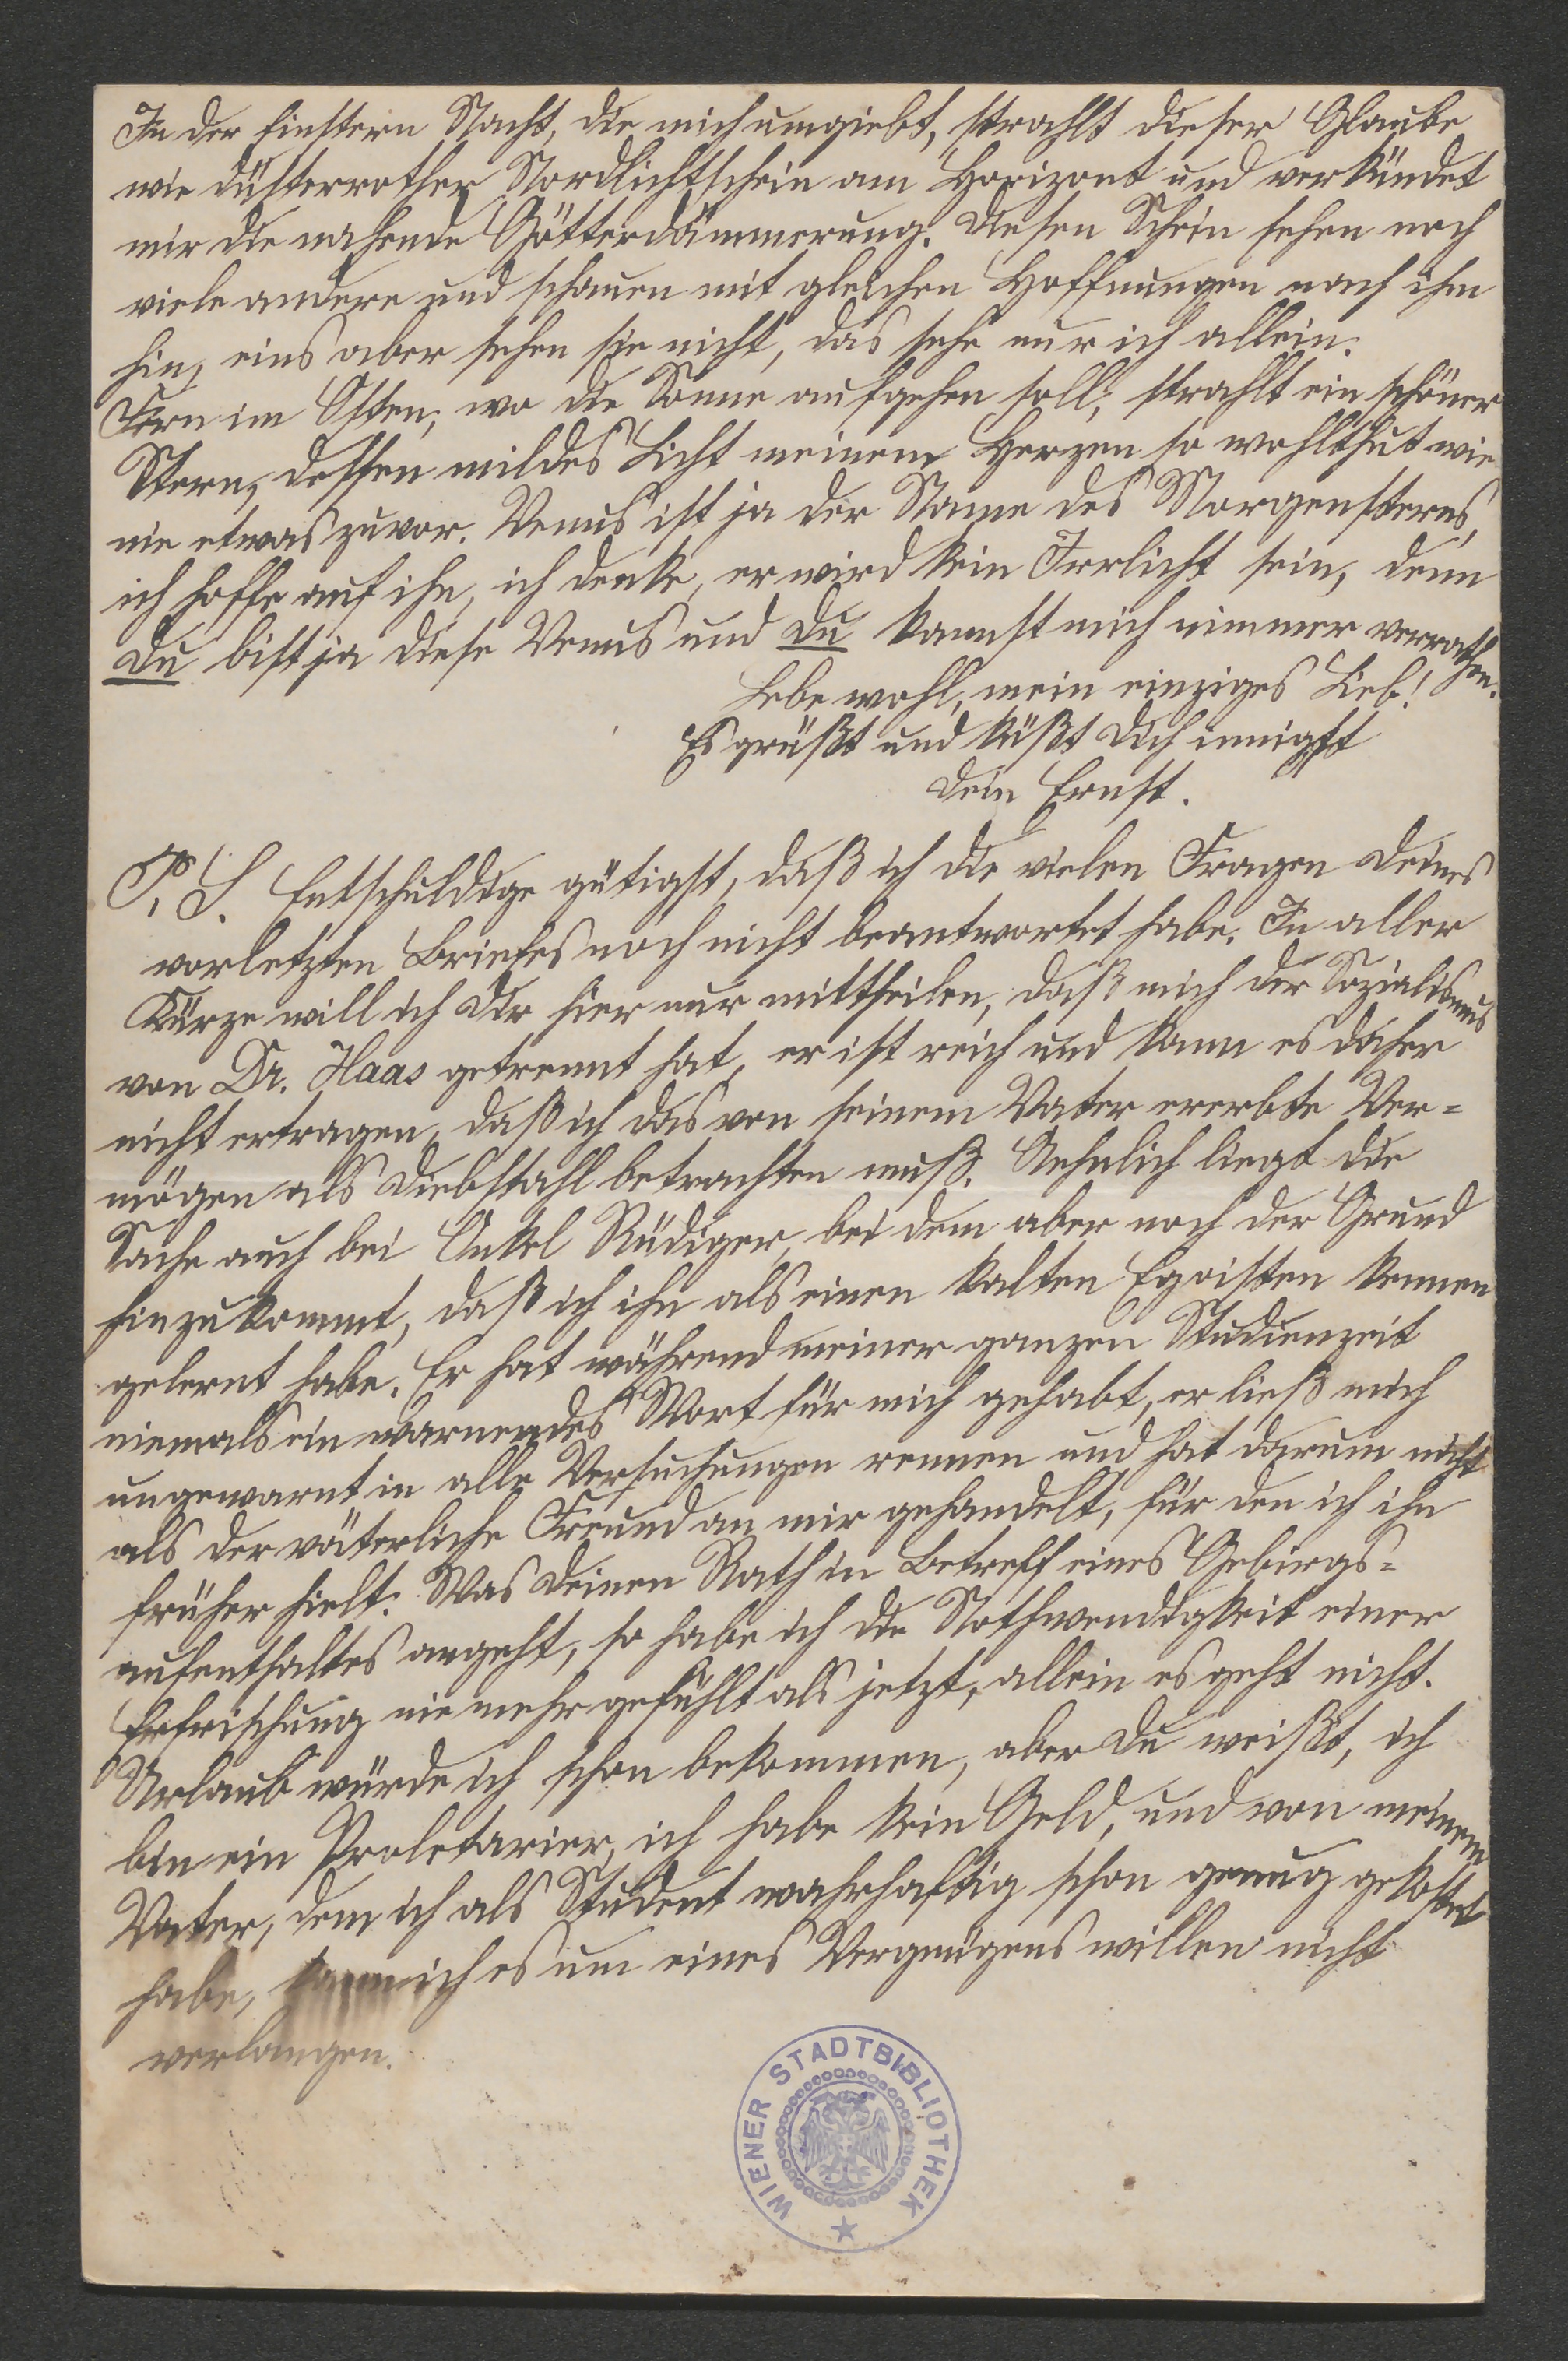 In der finstern Nacht, die mich umgiebt, strahlt dieser Glaube
wie düsterrother Nordlichtschein am Horizont und verkündet
mir die nahende Götterdämmerung. Diesen Schein sehen noch
viele andere und schauen mit gleichen Hoffnungen nach ihm
hin, eins aber sehen sie nicht, das sehe nur ich allein.
Fern im Osten, wo die Sonne aufgehen soll, strahlt ein schöner
Stern, dessen mildes Licht meinem Herzen so wohlthut wie
nie etwas zuvor. Venus ist ja der Name des Morgensterns,
ich hoffe auf ihn, ich denke, er wird kein Irrlicht sein, denn
Du bist ja diese Venus und Du kannst mich nimmer verrathen.
Lebe wohl, mein einziges Lieb!
Es grüßt und küßt Dich innigst
Dein Ernst.
P. S. Entschuldige gütigst, daß ich die vielen Fragen Deines
vorletzten Briefes noch nicht beantwortet habe. In aller
Kürze will ich Dir hier nur mittheilen, daß mich der Sozialismus
von Dr. Haas getrennt hat, er ist reich und kann es daher
nicht ertragen, daß ich das von seinem Vater ererbte Ver=
mögen als Diebstahl betrachten muß. Aehnlich liegt die
Sache auch bei Onkel Rüdiger, bei dem aber noch der Grund
hinzukommt, daß ich ihn als einen kalten Egoisten kennen
gelernt habe. Er hat während meiner ganzen Studienzeit
niemals ein warnendes Wort für mich gehabt, er ließ mich
ungewarnt in alle Versuchungen rennen und hat darum nicht
als der väterliche Freund an mir gehandelt, für den ich ihn
früher hielt. Was Deinen Rath in Betreff eines Gebirgs=
aufenthaltes angeht, so habe ich die Nothwendigkeit einer
Erfrischung nie mehr gefühlt als jetzt, allein es geht nicht.
Urlaub würde ich schon bekommen, aber Du weißt, ich
bin ein Proletarier, ich habe kein Geld, und von meinem
Vater, dem ich als Student wahrhaftig schon genug gekostet
habe, kann ich es um eines Vergnügens willen nicht
verlangen.
WIENER STADTBIBLIOTHEK